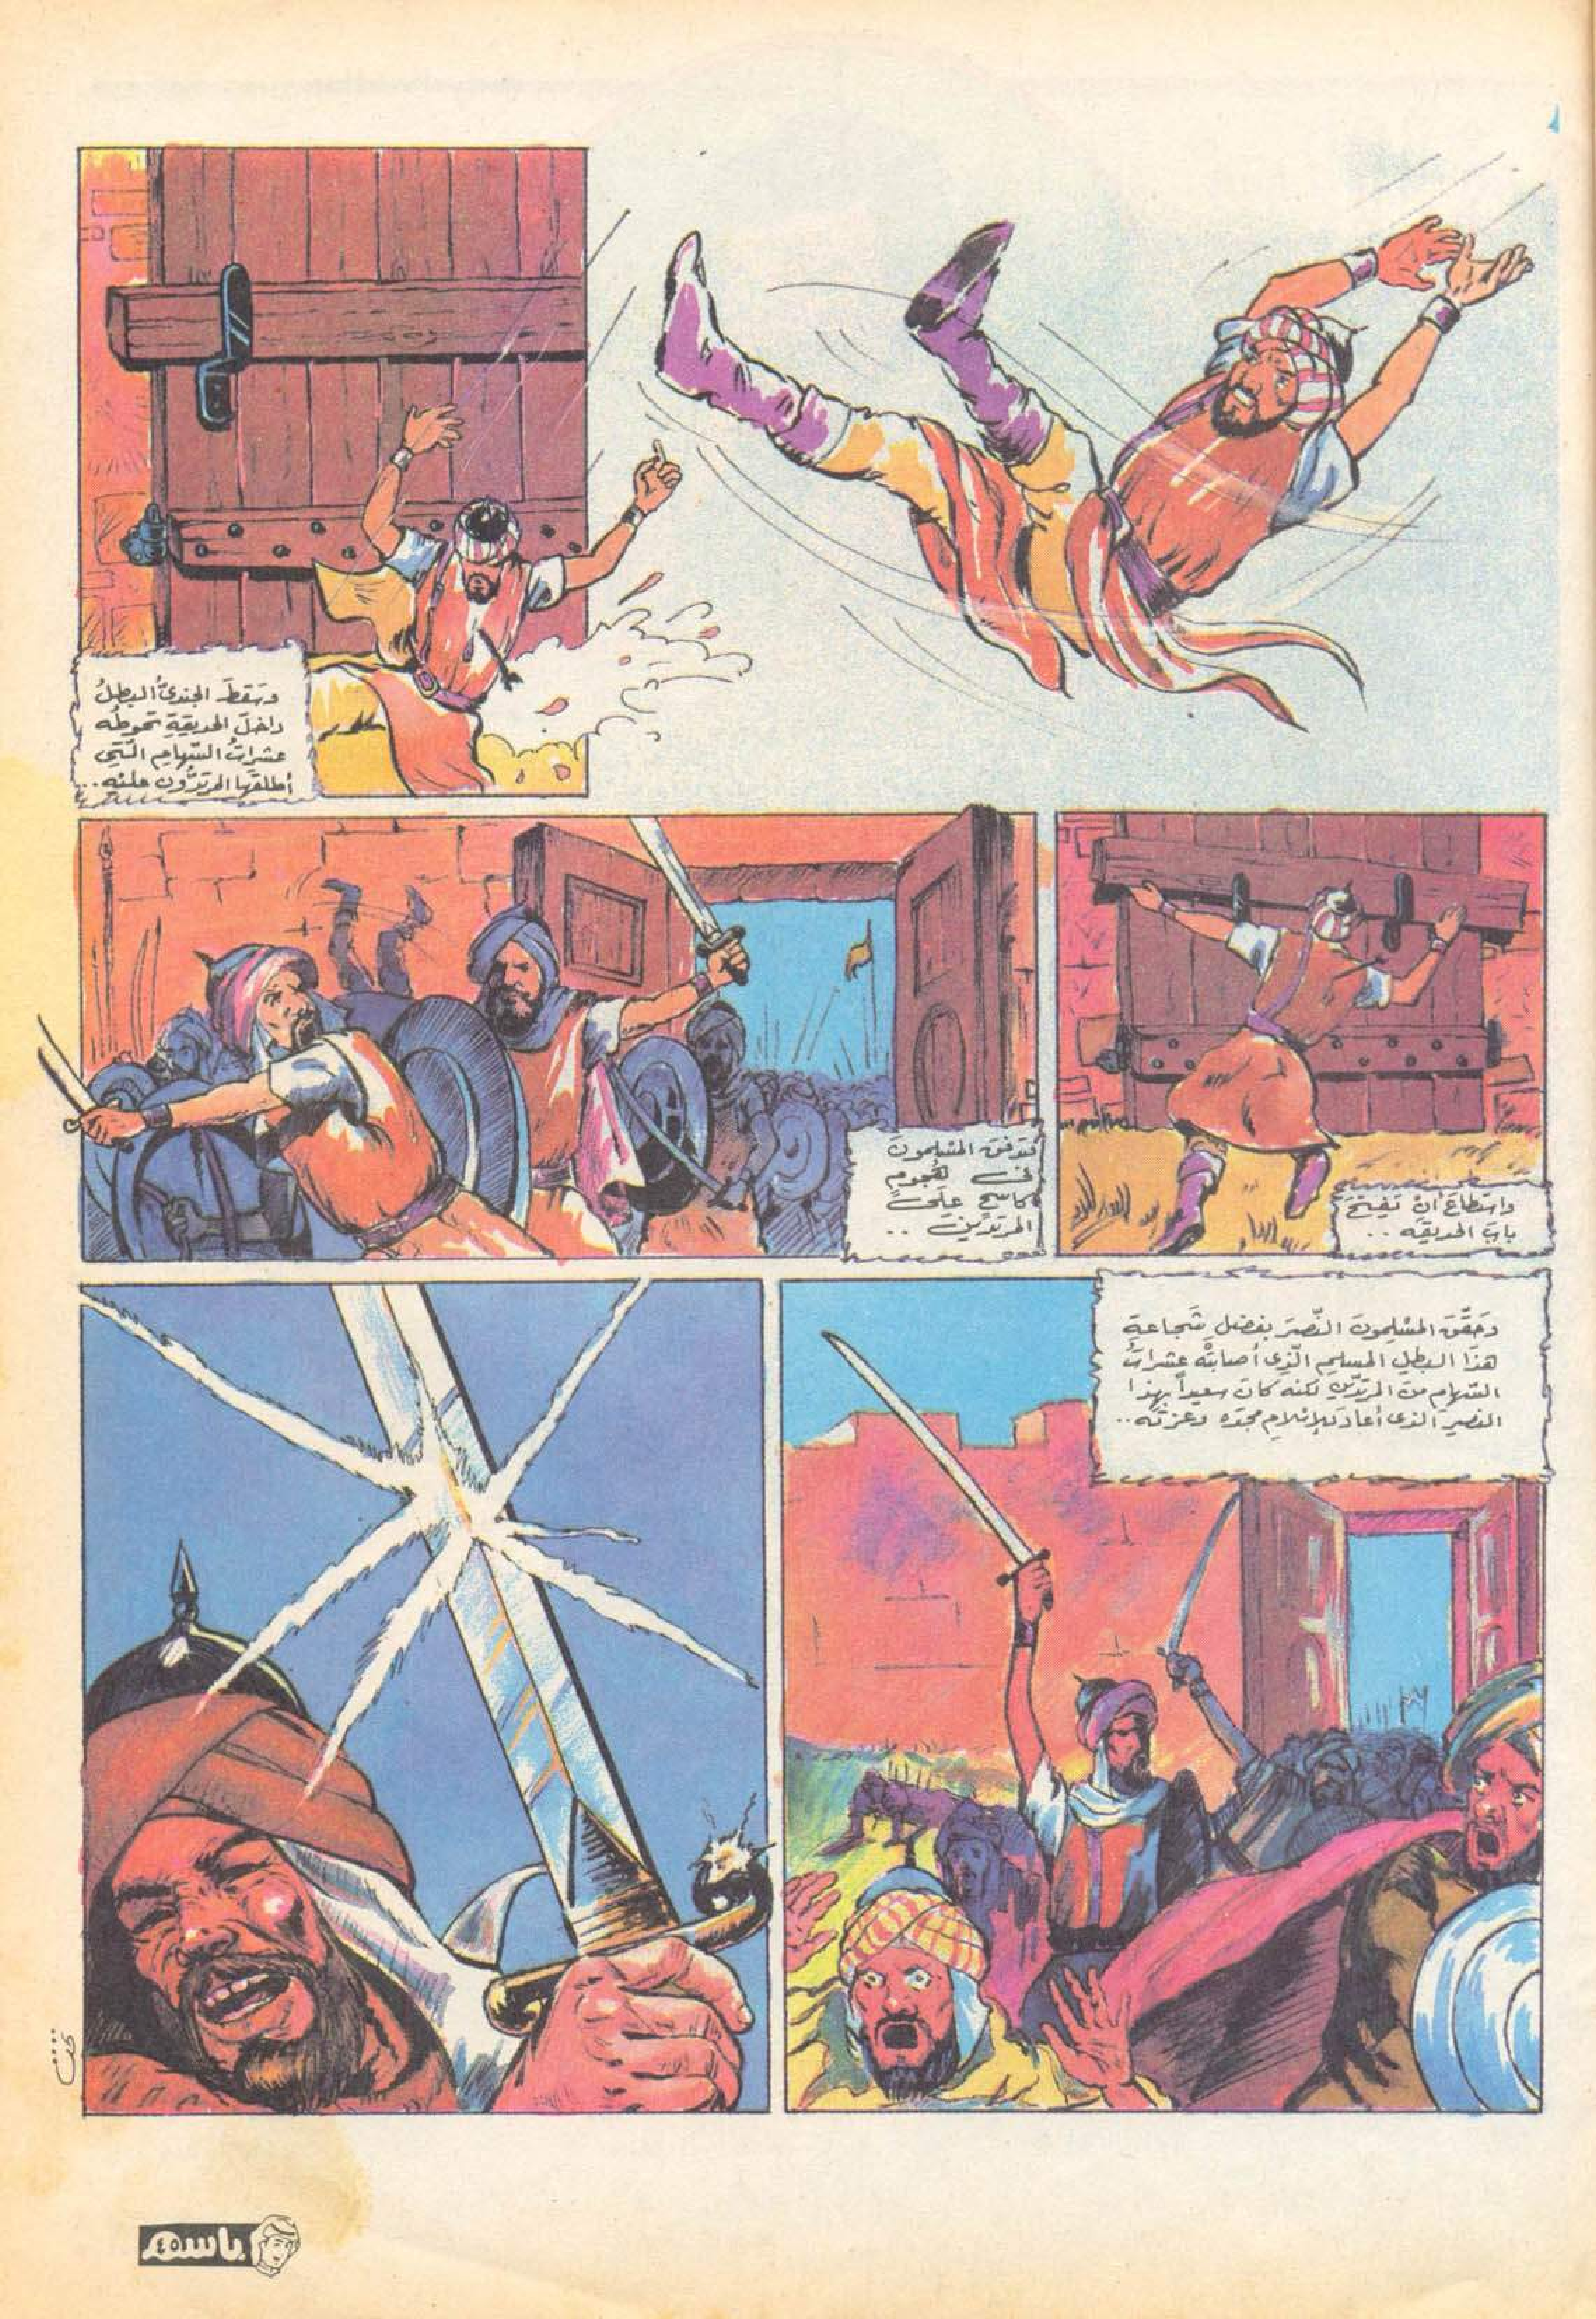 وَسَقَطَ الجنديُّ البطلُ
داخلَ الحديقةِ تحوطُه
عشراتُ السِّهامِ الَّتِي
أطلقَها المرتدُّون عليْهِ..
واستطاعَ أنْ يَفتحَ
بابَ الحديقه ..
فتدفقَ المسْلِمونَ
فى هُجومٍ
كاسحٍ عَلَى
المرتدِّينَ ..
وَحَقَّقَ المسْلِمونَ النَّصْرَ بفضلِ شَجاعةِ
هذَا البطلِ المسلمِ الّذِى أصابتْه عشراتُ
السِّهامِ منَ المرتدّينِ لكنه كانَ سعيداً بهذا
النصرِ الذى أعادَ للإسْلامِ مجدَه وعزتَه..
باسم
٤٥